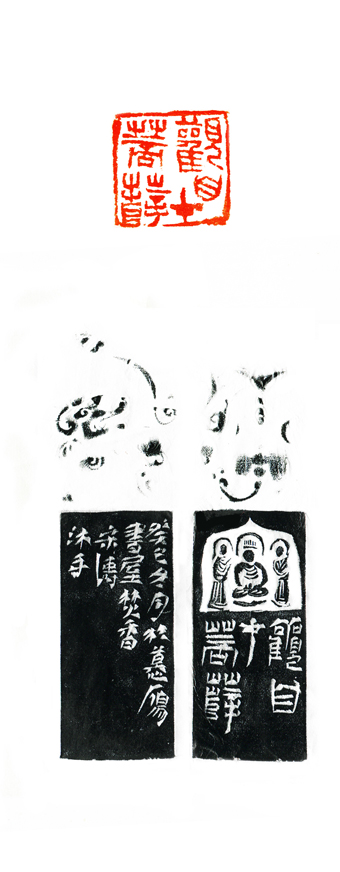 觀自在
菩薩
觀自
在
菩薩
癸巳冬月於慕
書屋焚香
宋
沐手